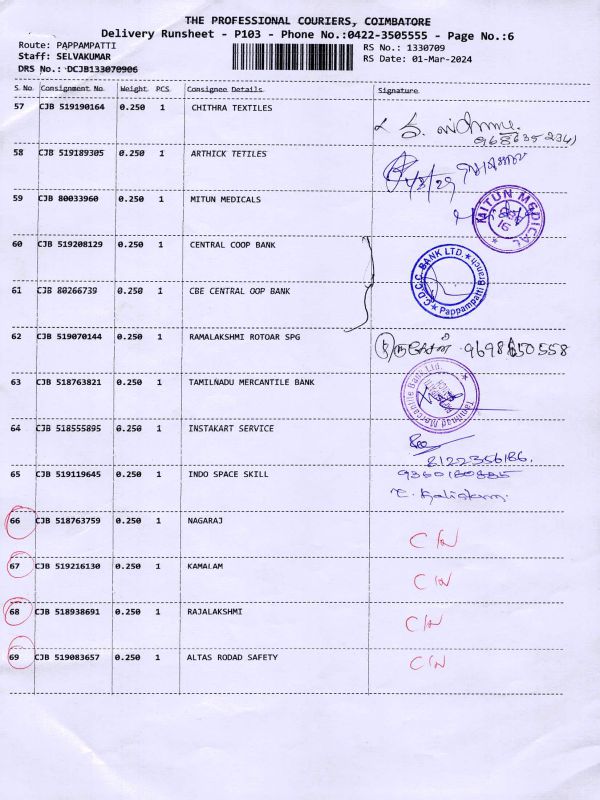 THE PROFESSIONAL COURIERS, COIMBATORE
Delivery Runsheet - P103 - Phone No.:0422-3505555 - Page No.:6
Route: PAPPAMPATTI
RS No.: 1330709
Staff: SELVAKUMAR
RS Date: 01-Mar-2024
DRS No.: DCJB133070906
S No Consignment No Weight PCS Consignee Details Signature
57 CJB 519190164 0.250 1 CHITHRA TEXTILES
58 CJB 519189305 0.250 1 ARTHICK TETILES
59 CJB 80033960 0.250 1 MITUN MEDICALS
MITUN MEDICAL
60 CJB 519208129 0.250 1 CENTRAL COOP BANK
C.D.C.C. BANK LTD. Pappampatti Branch
61 CJB 80266739 0.250 1 CBE CENTRAL OOP BANK
62 CJB 519070144 0.250 1 RAMALAKSHMI ROTOAR SPG
63 CJB 518763821 0.250 1 TAMILNADU MERCANTILE BANK
Tamilnad Mercantile Bank Ltd.
64 CJB 518555895 0.250 1 INSTAKART SERVICE
8122356186.
65 CJB 519119645 0.250 1 INDO SPACE SKILL
66 CJB 518763759 0.250 1 NAGARAJ
67 CJB 519216130 0.250 1 KAMALAM
68 CJB 518938691 0.250 1 RAJALAKSHMI
69 CJB 519083657 0.250 1 ALTAS RODAD SAFETY